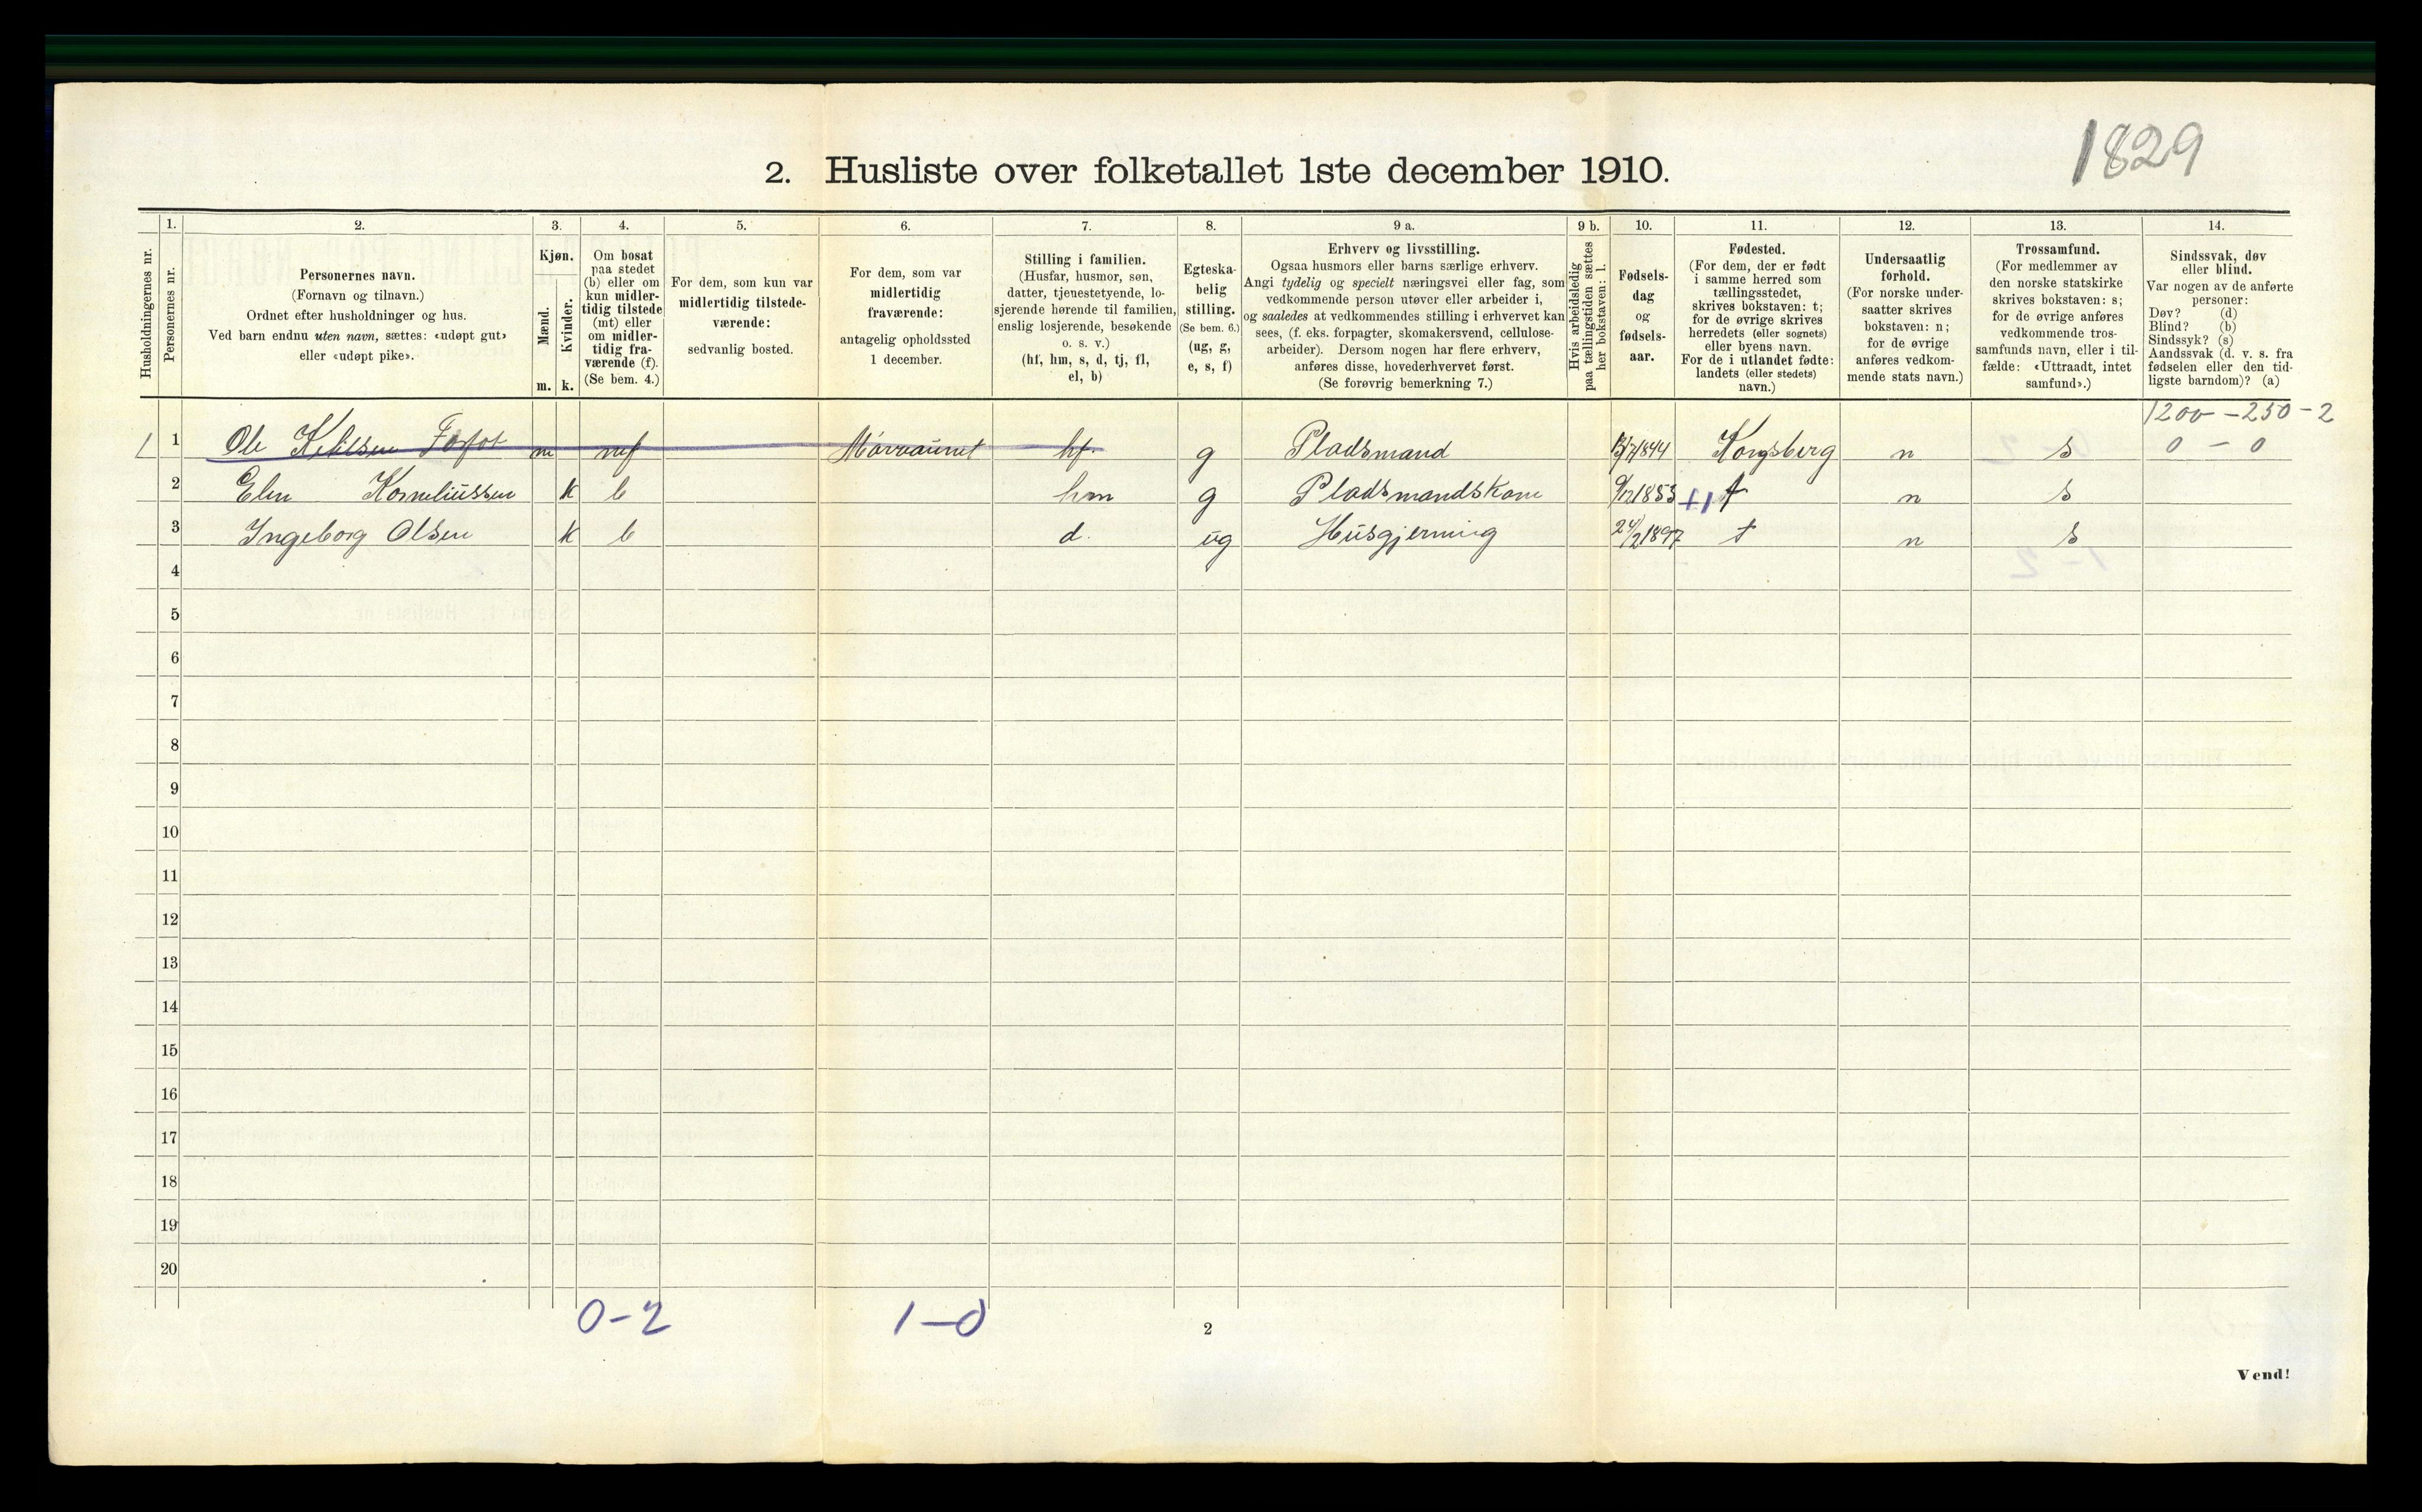 1829
2. Husliste over folketallet 1ste december 1910.
Husholdningernes nr.
1.
Personernes nr.
2.
Personernes navn.
(Fornavn og tilnavn.)
Ordnet efter husholdninger og hus.
Ved barn endnu uten navn, sættes: «udøpt gut»
eller «udøpt pike».
3.
Kjøn.
Mænd.
Kvinder.
m. k.
4.
Om bosat
paa stedet
(b) eller om
kun midler-
tidig tilstede
(mt) eller
om midler-
tidig fra-
værende (f).
(Se bem. 4.)
5.
For dem, som kun var
midlertidig tilstede-
værende:
sedvanlig bosted.
6.
For dem, som var
midlertidig
fraværende:
antagelig opholdssted
1 december.
7.
Stilling i familien.
(Husfar, husmor, søn,
datter, tjenestetyende, lo-
sjerende hørende til familien,
enslig losjerende, besøkende
o. s. v.)
(hf, hm, s, d, tj, fl,
el, b)
8.
Egteska-
belig
stilling.
(Se bem. 6.)
(ug, g,
e, s, f)
9 a.
Erhverv og livsstilling.
Ogsaa husmors eller barns særlige erhverv.
Angi tydelig og specielt næringsvei eller fag, som
vedkommende person utøver eller arbeider i,
og saaledes at vedkommendes stilling i erhvervet kan
sees, (f. eks. forpagter, skomakersvend, cellulose-
arbeider). Dersom nogen har flere erhverv,
anføres disse, hovederhvervet først.
(Se forøvrig bemerkning 7.)
9 b.
Hvis arbeidsledig
paa tællingstiden sættes
her bokstaven: l.
10.
Fødsels-
dag
og
fødsels-
aar.
11.
Fødested.
(For dem, der er født
i samme herred som
tællingsstedet,
skrives bokstaven: t;
for de øvrige skrives
herredets (eller sognets)
eller byens navn.
For de i utlandet fødte:
landets (eller stedets)
navn.)
12.
Undersaatlig
forhold.
(For norske under-
saatter skrives
bokstaven: n;
for de øvrige
anføres vedkom-
mende stats navn.)
13.
Trossamfund.
(For medlemmer av
den norske statskirke
skrives bokstaven: s;
for de øvrige anføres
vedkommende tros-
samfunds navn, eller i til-
fælde: «Uttraadt, intet
samfund».)
14.
Sindssvak, døv
eller blind.
Var nogen av de anførte
personer:
Døv? (d)
Blind? (b)
Sindssyk? (s)
Aandssvak (d. v. s. fra
fødselen eller den tid-
ligste barndom)? (a)
1200 - 250 - 2
1 1 Ole Ketilsen m mf hf. g Pladsmand 1844 Kongsberg n s 0 - 0
2 Elen Korneliussen k b hm g Pladsmandskone 9/12 1853 t n s
3 Ingeborg Olsen k b d. ug Husgjerning 24/2 1897 t n s
4
5
6
7
8
9
10
11
12
13
14
15
16
17
18
19
20
0-2 1-0
2
Vend!